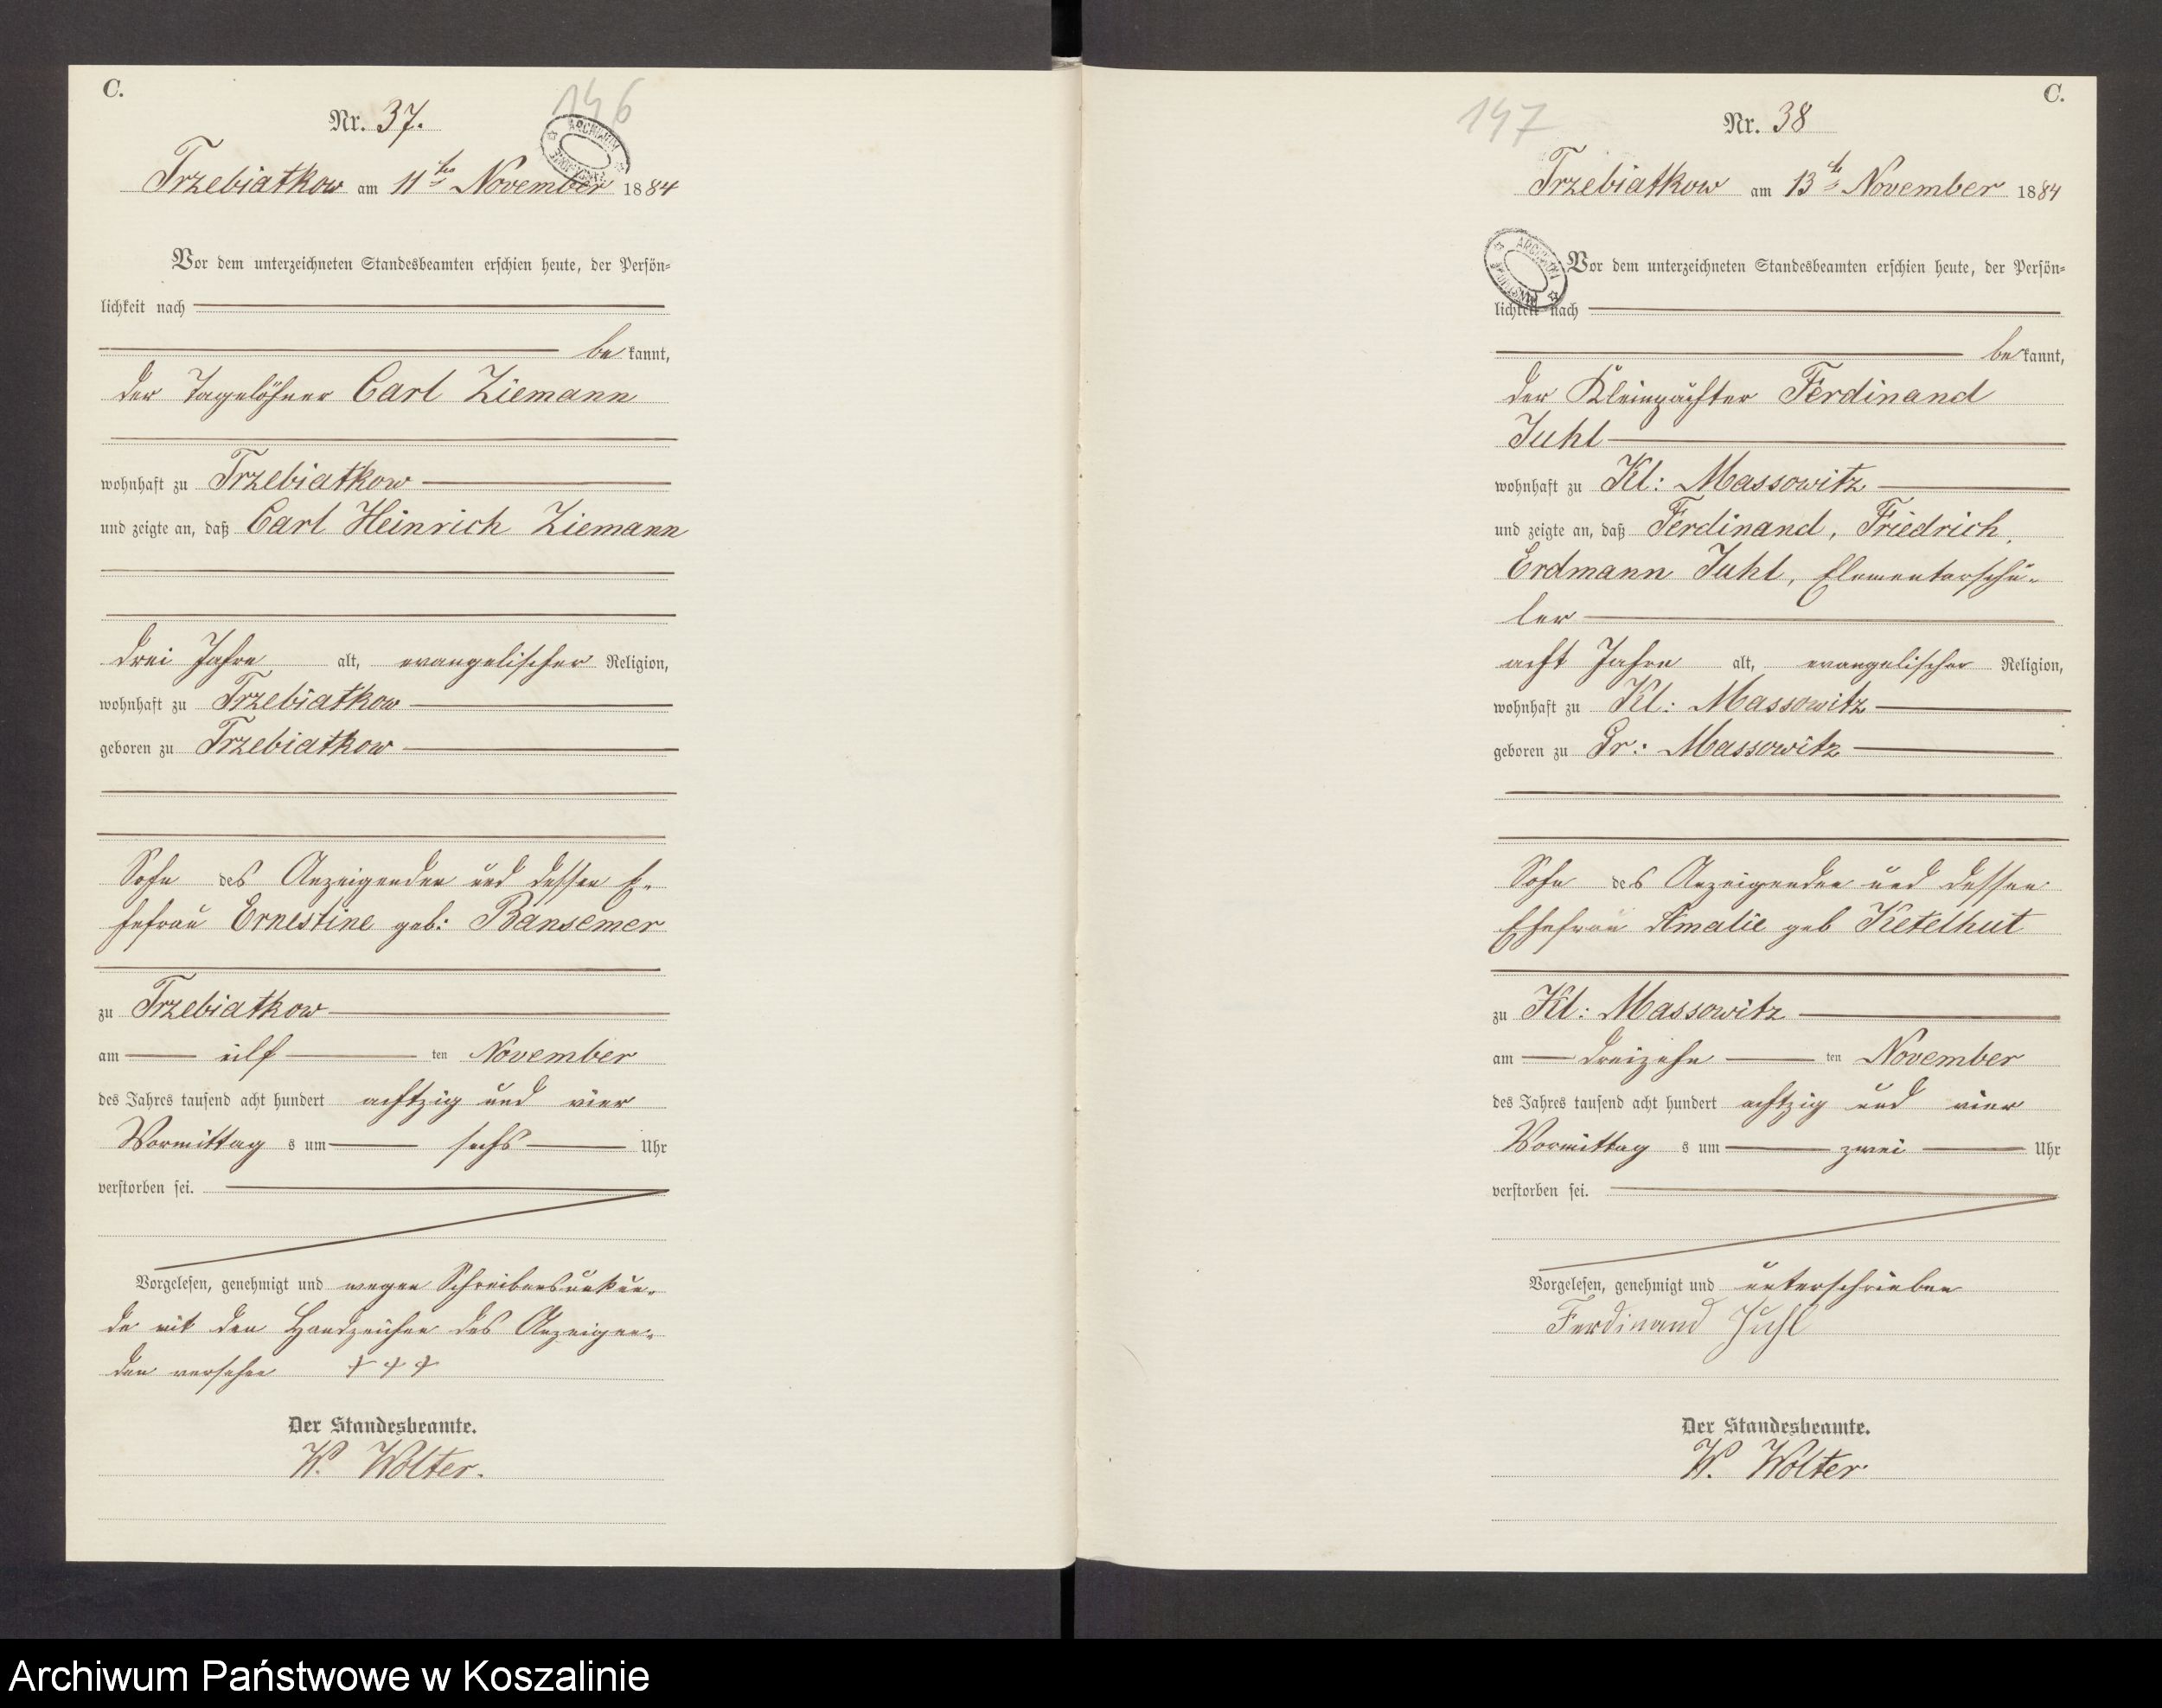 C.
146
Nr. 37.
ARCHIWUM
Trzebiatkow am 11ten November 1884
Vor dem unterzeichneten Standesbeamten erschien heute, der Persön=
lichkeit nach
bekannt,
der Tagelöhner Carl Ziemann
wohnhaft zu Trzebiatkow
und zeigte an, daß Carl Heinrich Ziemann
drei Jahre alt, evangelischer Religion,
wohnhaft zu Trzebiatkow
geboren zu Trzebiatkow
Sohn des Anzeigenden und dessen E-
hefrau Ernestine geb: Bansemer
zu Trzebiatkow
am eilf ten November
des Jahres tausend acht hundert achtzig und vier
Vormittag s um sechs Uhr
verstorben sei.
Vorgelesen, genehmigt und wegen Schreibensunkun-
de mit den Handzeichen des Anzeigen-
den versehen + + +
Der Standesbeamte.
W. Wolter.
C.
147
Nr. 38
Trzebiatkow am 13ten November 1884
ARCHIWUM
Vor dem unterzeichneten Standesbeamten erschien heute, der Persön=
lichkeit nach
bekannt,
der Kleinpächter Ferdinand
Juhl
wohnhaft zu Kl: Massowitz
und zeigte an, daß Ferdinand, Friedrich,
Erdmann Juhl, Elementarschü-
ler
acht Jahre alt, evangelischer Religion,
wohnhaft zu Kl: Massowitz
geboren zu Gr: Massowitz
Sohn des Anzeigenden und dessen
Ehefrau Amalie geb Ketelhut
zu Kl: Massowitz
am dreizehn ten November
des Jahres tausend acht hundert achtzig und vier
Vormittag s um zwei Uhr
verstorben sei.
Vorgelesen, genehmigt und unterschrieben
Ferdinand Juhl
Der Standesbeamte.
W. Wolter
Archiwum Państwowe w Koszalinie